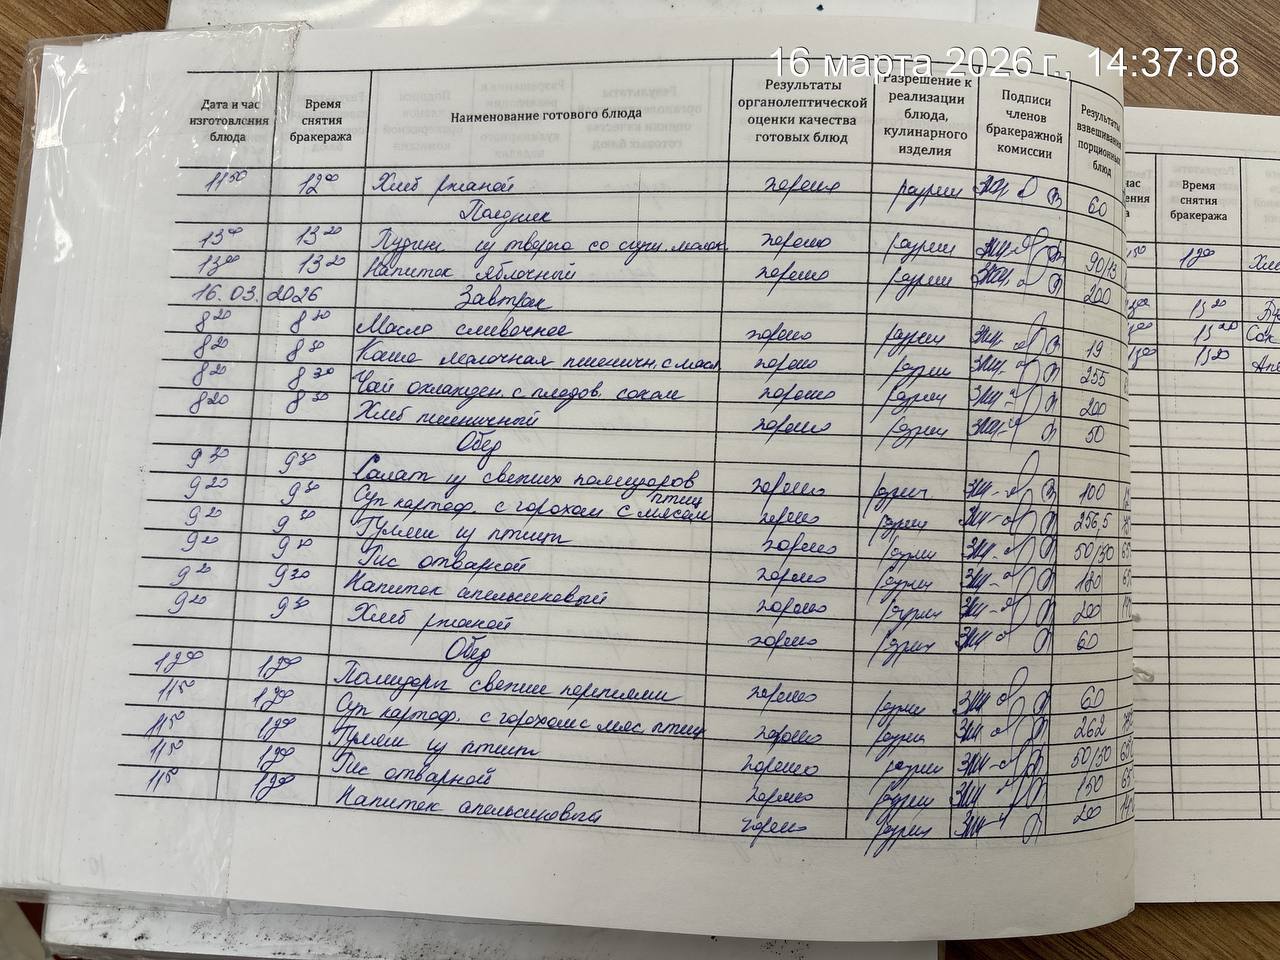 16 марта 2026 г., 14:37:08
Дата и час изготовления блюда | Время снятия бракеража | Наименование готового блюда | Результаты органолептической оценки качества готовых блюд | Разрешение к реализации блюда, кулинарного изделия | Подписи членов бракеражной комиссии | Результаты взвешивания порционных блюд
11 50 | 12 00 | Хлеб ржаной | хорошо | разреш | 60
Полдник
13 00 | 13 20 | Пудинг из творога со сгущ. молок. | хорошо | разреш | 90/13
13 00 | 13 20 | Напиток яблочный | хорошо | разреш | 200
16.03.2026 | Завтрак
8 20 | 8 30 | Масло сливочное | хорошо | разреш | 19
8 20 | 8 30 | Каша молочная пшеничн. с масл | хорошо | разреш | 255
8 20 | 8 30 | Чай охлажден. с плодов. соком | хорошо | разреш | 200
8 20 | 8 30 | Хлеб пшеничный | хорошо | разреш | 50
Обед
9 30 | Салат из свежих помидоров | хорошо | разреш | 100
9 20 | 9 30 | Суп картоф. с горохом с мясом птиц | хорошо | разреш | 256,5
9 20 | 9 30 | Гуляш из птицы | хорошо | разреш | 50/50
9 20 | 9 30 | Рис отварной | хорошо | разреш | 180
9 20 | 9 30 | Напиток апельсиновый | хорошо | разреш | 200
9 20 | 9 30 | Хлеб ржаной | хорошо | разреш | 60
Обед
12 00 | Помидоры свежие порциями | хорошо | разреш | 60
11 50 | 12 00 | Суп картоф. с горохом с мяс. птиц | хорошо | разреш | 262
11 50 | 12 00 | Гуляш из птицы | хорошо | разреш | 50/50
11 50 | 12 00 | Рис отварной | хорошо | разреш | 150
11 50 | 12 00 | Напиток апельсиновый | хорошо | разреш | 200
Время снятия бракеража
12 00
13 20
13 20 | Сок
13 20